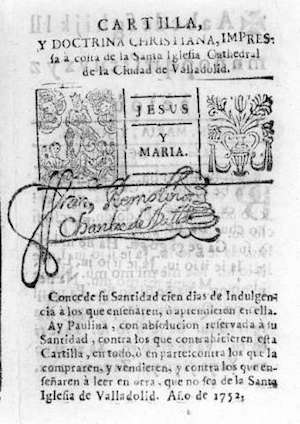 CARTILLA,
Y DOCTRINA CHRISTIANA, IMPRES-
sa à costa de la Santa Iglesia Cathedral
de la Ciudad de Valladolid.
JESUS
Y
MARIA.
Concede su Santidad cien dias de Indulgen-
cia à los que enseñaren, ò aprendieren en ella.
Ay Paulina, con absolucion reservada à su
Santidad, contra los que contrahicieren esta
Cartilla, en todo, ò en parte: contra los que la
compraren, y vendieren, y contra los que en-
señaren à leer en otra, que no sea de la Santa
Iglesia de Valladolid. Año de 1752;